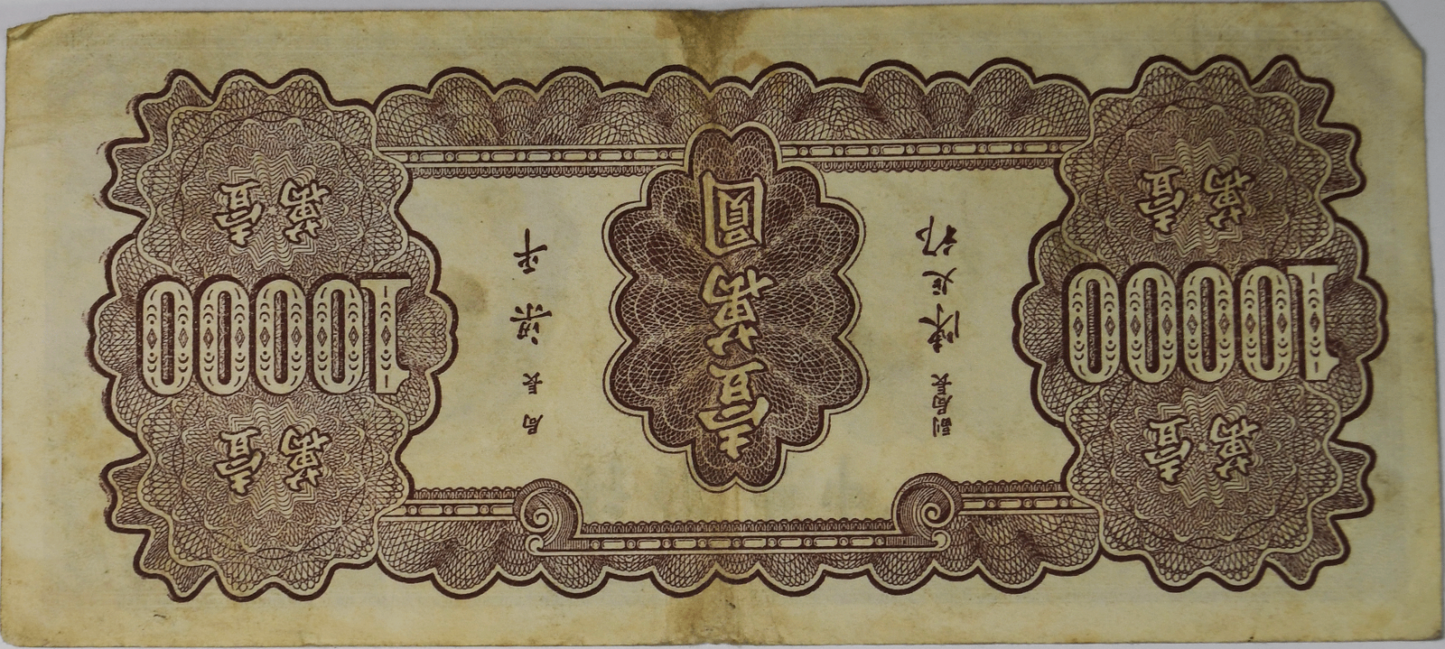 壹萬
10000
壹萬
副局長 陳
壹萬圓
局長 梁平
壹萬
10000
壹萬